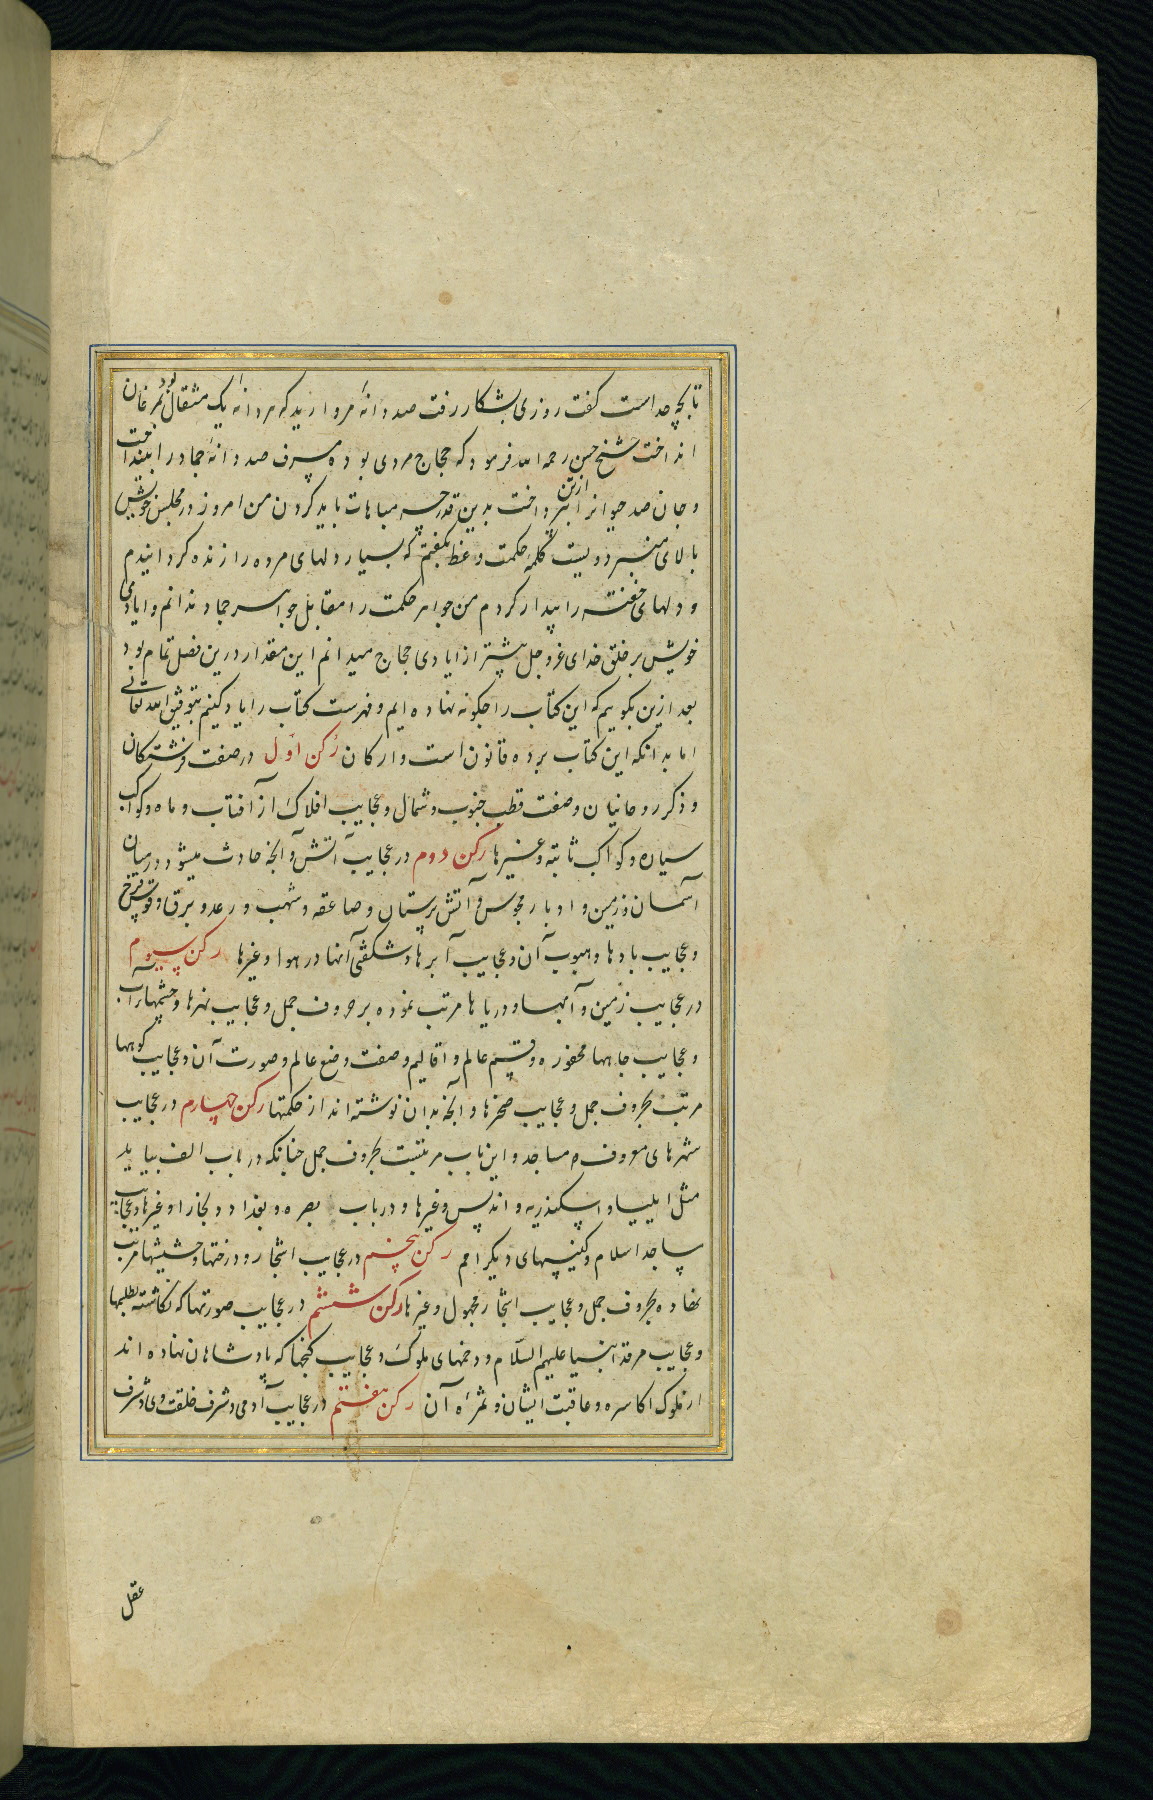 تا بچه حد است گفت روزی بشکار رفت صد دانۀ مروارید که هر دانه یک مثقال بود بمرغان
انداخت شیخ حسن رحمه الله فرمود که حجاج مردی بوده مسرف صد دانۀ جماد را بینداخت
و جان صد حیوانرا از تن بپرداخت بدین قدر چه مباهات باید کردن من امروز در مجلس خویش
بالای منبر دویست کلمۀ حکمت و وعظ بگفتم که بسیار دلهای مرده را زنده گردانیدم
و دلهای خفته را بیدار کردم من جواهر حکمت را مقابل جواهر جماد ندانم و ایادی
خویش بر خلق خدای عز و جل بیشتر از ایادی حجاج میدانم این مقدار درین فصل تمام بود
بعد ازین بگوییم که این کتاب را چگونه نهاده ایم و فهرست کتاب را یاد کنیم بتوفیق الله تعالی
اما بدانکه این کتاب بر ده قانون است و ارکان رکن اول در صفت فرشتگان
و ذکر روحانیان و صفت قطب جنوب و شمال و عجایب افلاک از آفتاب و ماه و کواکب
سیاره و کواکب ثابته و غیرها رکن دوم در عجایب آتش و آنچه حادث میشود در میان
آسمان و زمین و ادبار مجوس و آتش پرستان و صاعقه و شهب و رعد و برق و قوس قزح
و عجایب بادها و هبوب آن و عجایب ابرها و شگفتی آنها در هوا و غیرها رکن سیوم
در عجایب زمین و آبها و دریاها مرتب نموده بر حروف جمل و عجایب نهرها و چشمهای آب
و عجایب چاهها محفوره و قسم عالم و اقالیم و صفت وضع عالم و صورت آن و عجایب کوهها
مرتب بحروف جمل و عجایب صخرها و آنچه بدان نوشته اند از حکمتها رکن چهارم در عجایب
شهرهای معروف و مساجد و این باب مرتبست بحروف جمل چنانکه در باب الف بیاید
مثل ایلیا و اسکندریه و اندلس و غیرها و در باب بصره و بغداد و بخارا و غیرها و عجایب
مساجد اسلام و کنیسهای دیگر امم رکن پنجم در عجایب اشجار و درختها و حشیشها مرتب
نهاده بحروف جمل و عجایب اشجار مجهول و غیرها رکن ششم در عجایب صورتها که نگاشته بطلسمها
و عجایب مرقد انبیا علیهم السلام و دخمهای ملوک و عجایب گنجها که پادشاهان نهاده اند
از ملوک اکاسره و عاقبت ایشان و ثمرۀ آن رکن هفتم در عجایب آدمی و شرف خلقت وی و شرف
عقل